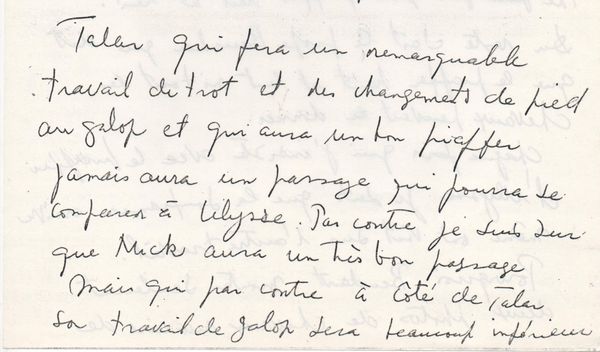 Talar qui fera un remarquable
travail de trot et des changements de pied
au galop et qui aura un bon piaffer
jamais aura un passage qui pourra se
comparer à Ulysse. Par contre je suis sur
que Mick aura un très bon passage
Mais qui par contre à côté de Talar
son travail de galop sera beaucoup inférieur